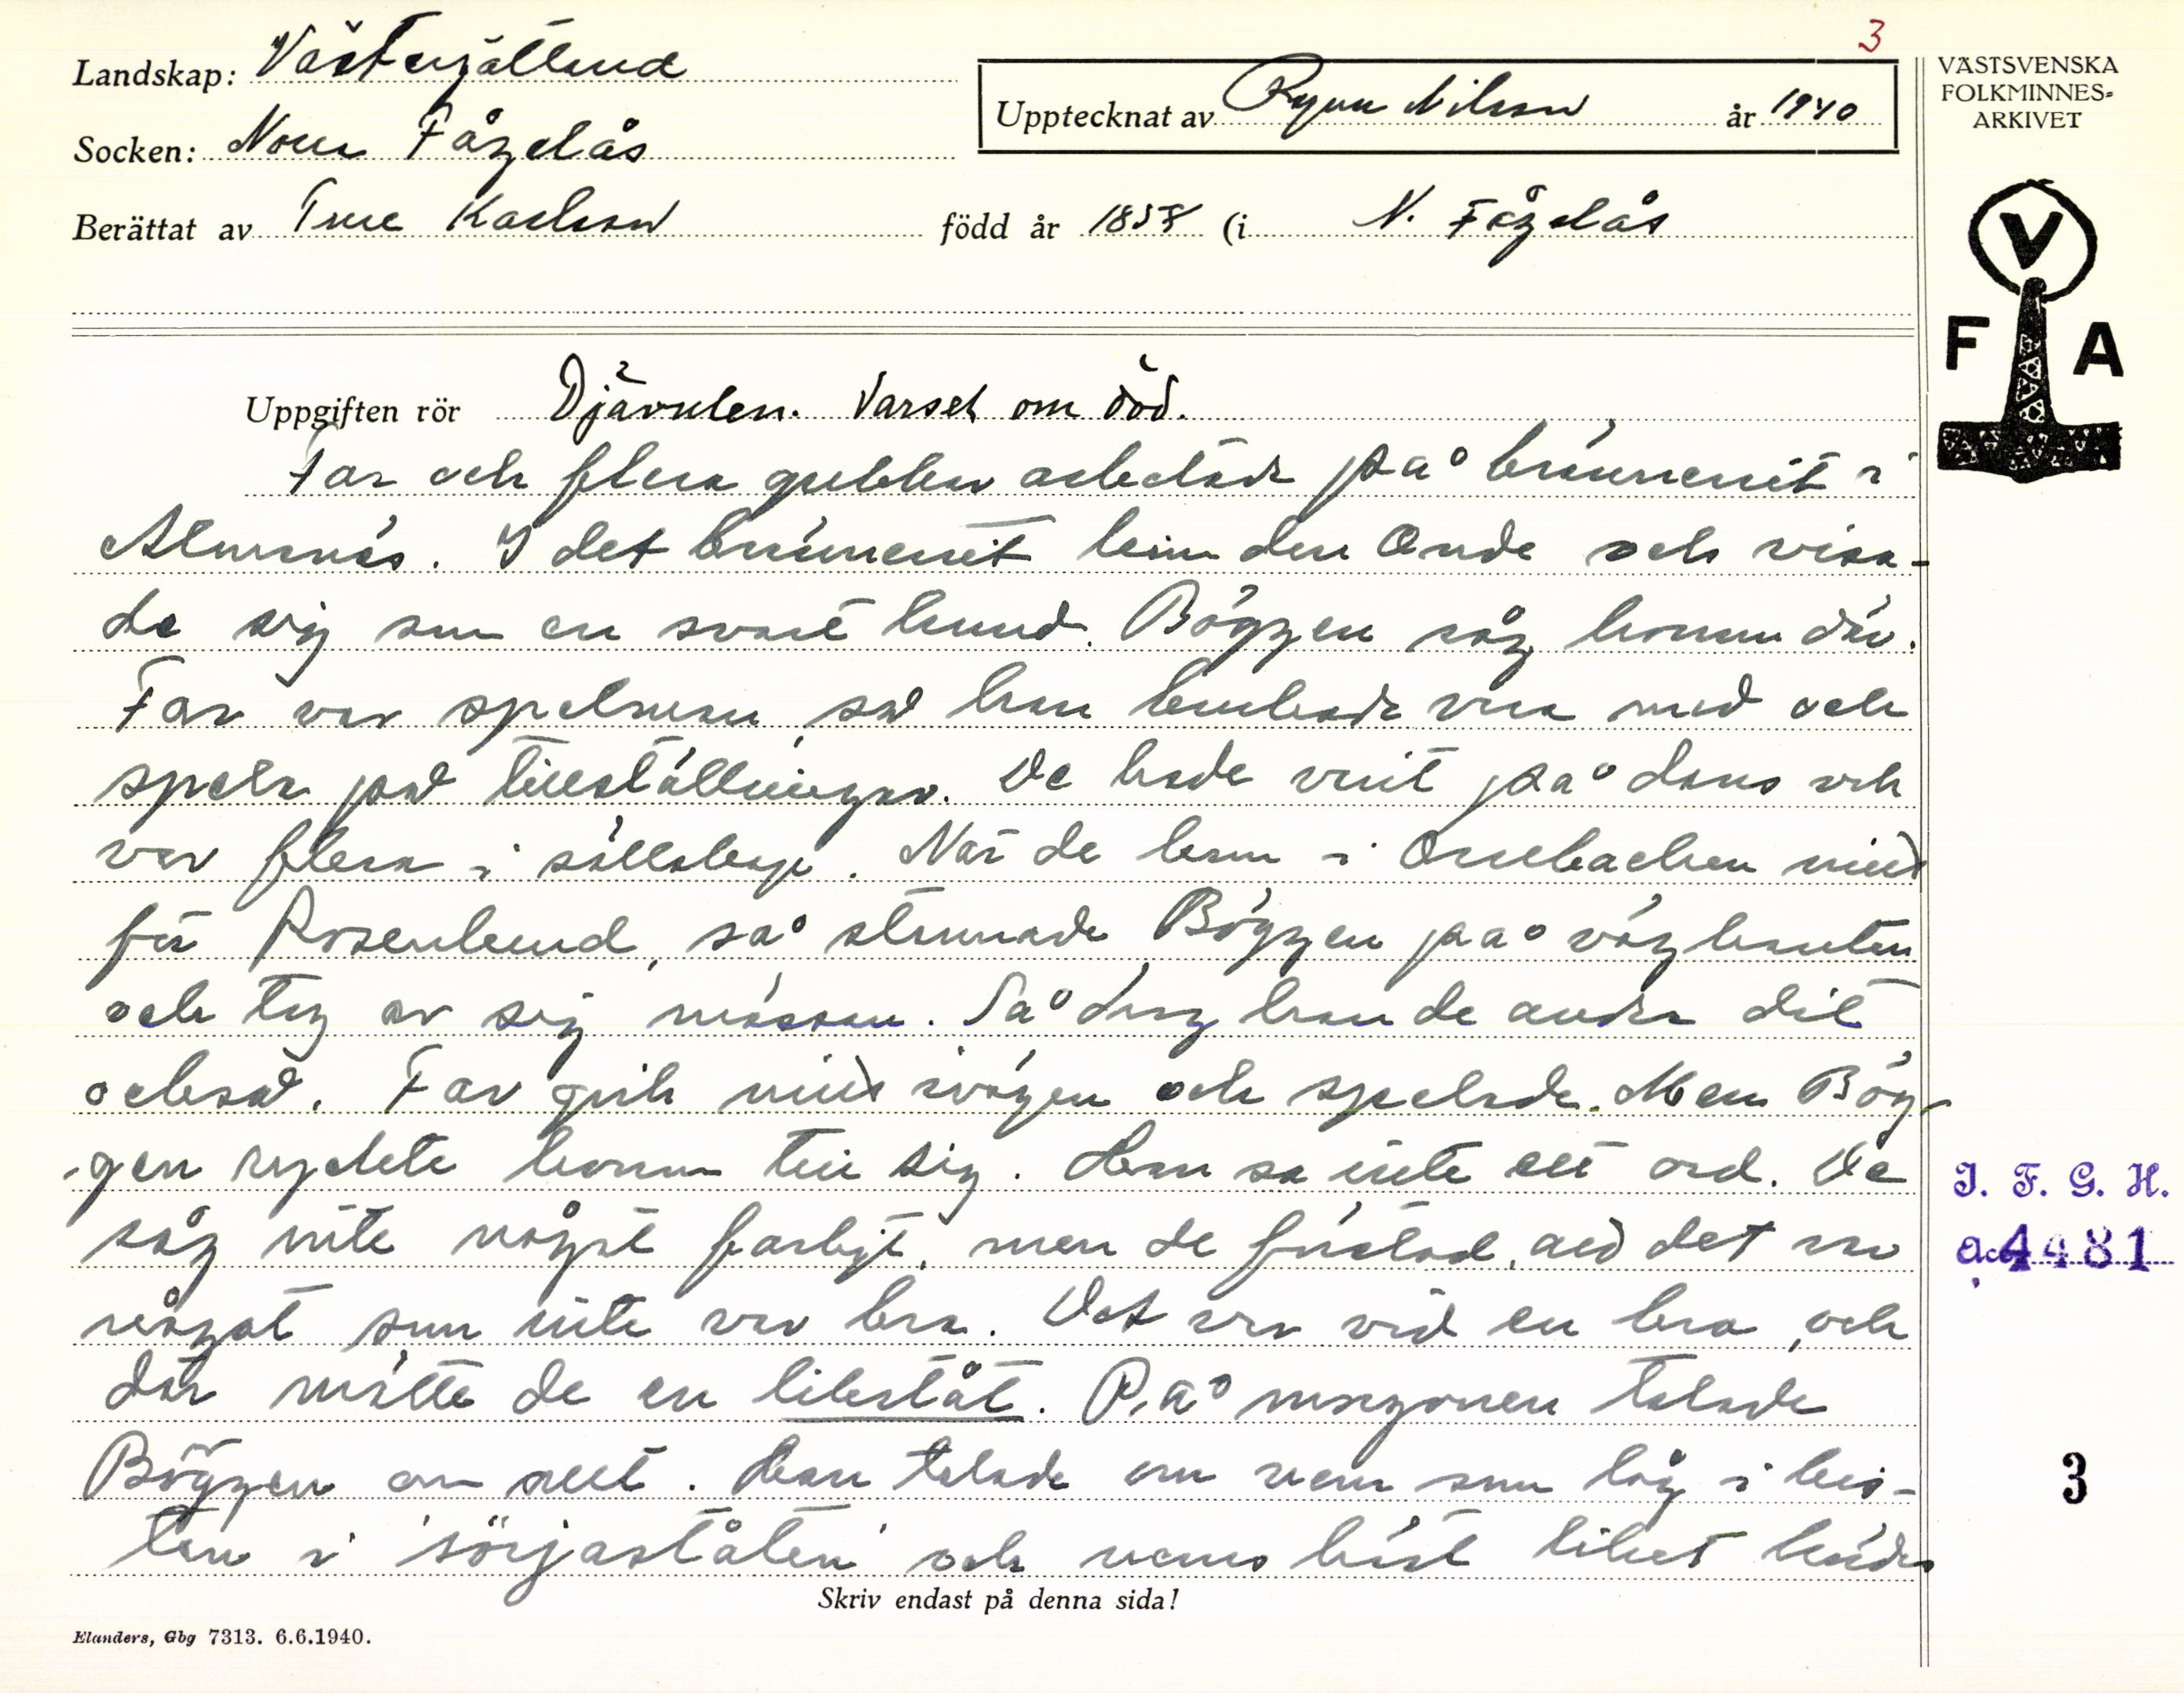 3
Landskap: Västergötland
Socken: Norra Fågelås
Berättat av Ture Karlsson
Upptecknat av Ragnar Nilsson år 1940
född år 1858 (i N. Fågelås
VÄSTSVENSKA
FOLKMINNES-
ARKIVET
V
F A
Uppgiften rör Djävulen. Varsel om död.
Far och flera gubbar arbetade på bränneriet i
Almnäs. I det bränneriet kom den Onde och visa-
de sig som en svart hund. Böggen såg honom där.
Far var spelman, så han brukade vara med och
spela på tillställningar. De hade varit på dans och
var flera i sällskap. När de kom i backen nind
för Rosenlund, så stannade Böggen på vägkanten
och tog av sig mössan. Så drog han de andra dit
också. Far gick mitt i vägen och spelade. Men Bög-
gen ryckte honom till sig. Han sa inte ett ord. De
såg inte något farligt, men de förstod, att det var
något som inte var bra. Det var vid en bro, och
där mötte de en likståt. På morgonen talade
Böggen om allt. Han talade om vem som låg i kis-
tan i 'sörjaståten' och vems häst liket kördes
Skriv endast på denna sida!
Elanders, Gbg 7313. 6.6.1940.
I. F. G. H.
acc. 4481
3